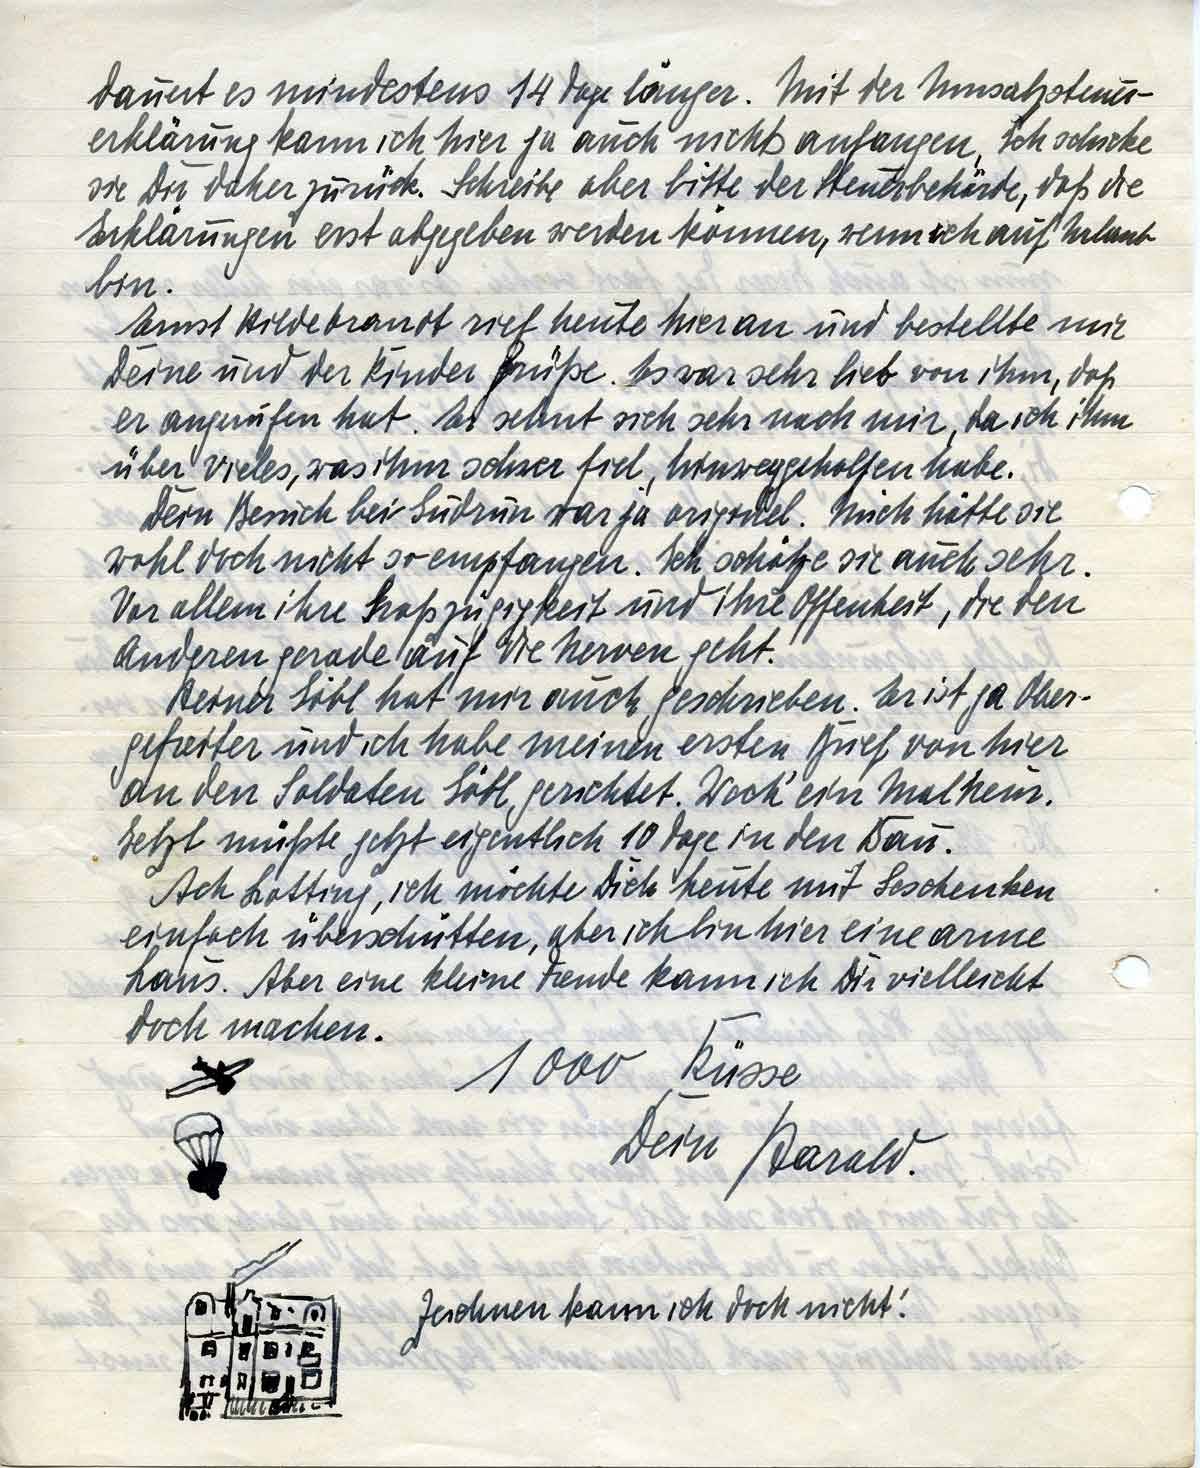 dauert es mindestens 14 Tage länger. Mit der Umsatzsteuer-
erklärung kann ich hier ja auch nichts anfangen, Ich schicke
sie Dir daher zurück. Schreibe aber bitte der Steuerbehörde, daß die
Erklärungen erst abgegeben werden können, wenn ich auf Urlaub
bin.
Ernst Hildebrandt rief heute hier an und bestellte mir
Deine und der Kinder Grüße. Es war sehr lieb von ihm, daß
er angerufen hat. Er sehnt sich sehr nach mir, da ich ihm
über vieles, was ihm schwer fiel, hinweggeholfen habe.
Dein Besuch bei Gudrun war ja originel. Mich hätte sie
wohl doch nicht so empfangen. Ich schätze sie auch sehr.
Vor allem ihre Großzügigkeit und ihre Offenheit, die den
Anderen gerade auf die Nerven geht.
Reiner Göbl hat mir auch geschrieben. Er ist ja Ober-
gefreiter und ich habe meinen ersten Brief von hier
an den Soldaten Göbl gerichtet. Welch' ein Malheur.
Jetzt müßte jetzt eigentlich 10 Tage in den Bau.
Ach Lotting, ich möchte Dich heute mit Geschenken
einfach überschütten, aber ich bin hier eine arme
Laus. Aber eine kleine Freude kann ich Dir vielleicht
doch machen.
1000 Küsse
Dein Harald.
Zeichnen kann ich doch nicht!